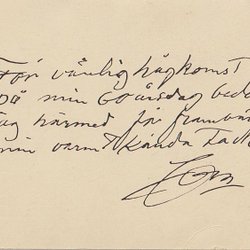 För vänlig hågkomst
på min 60 årsdag beder
jag härmed få frambära
min varmt kända tack